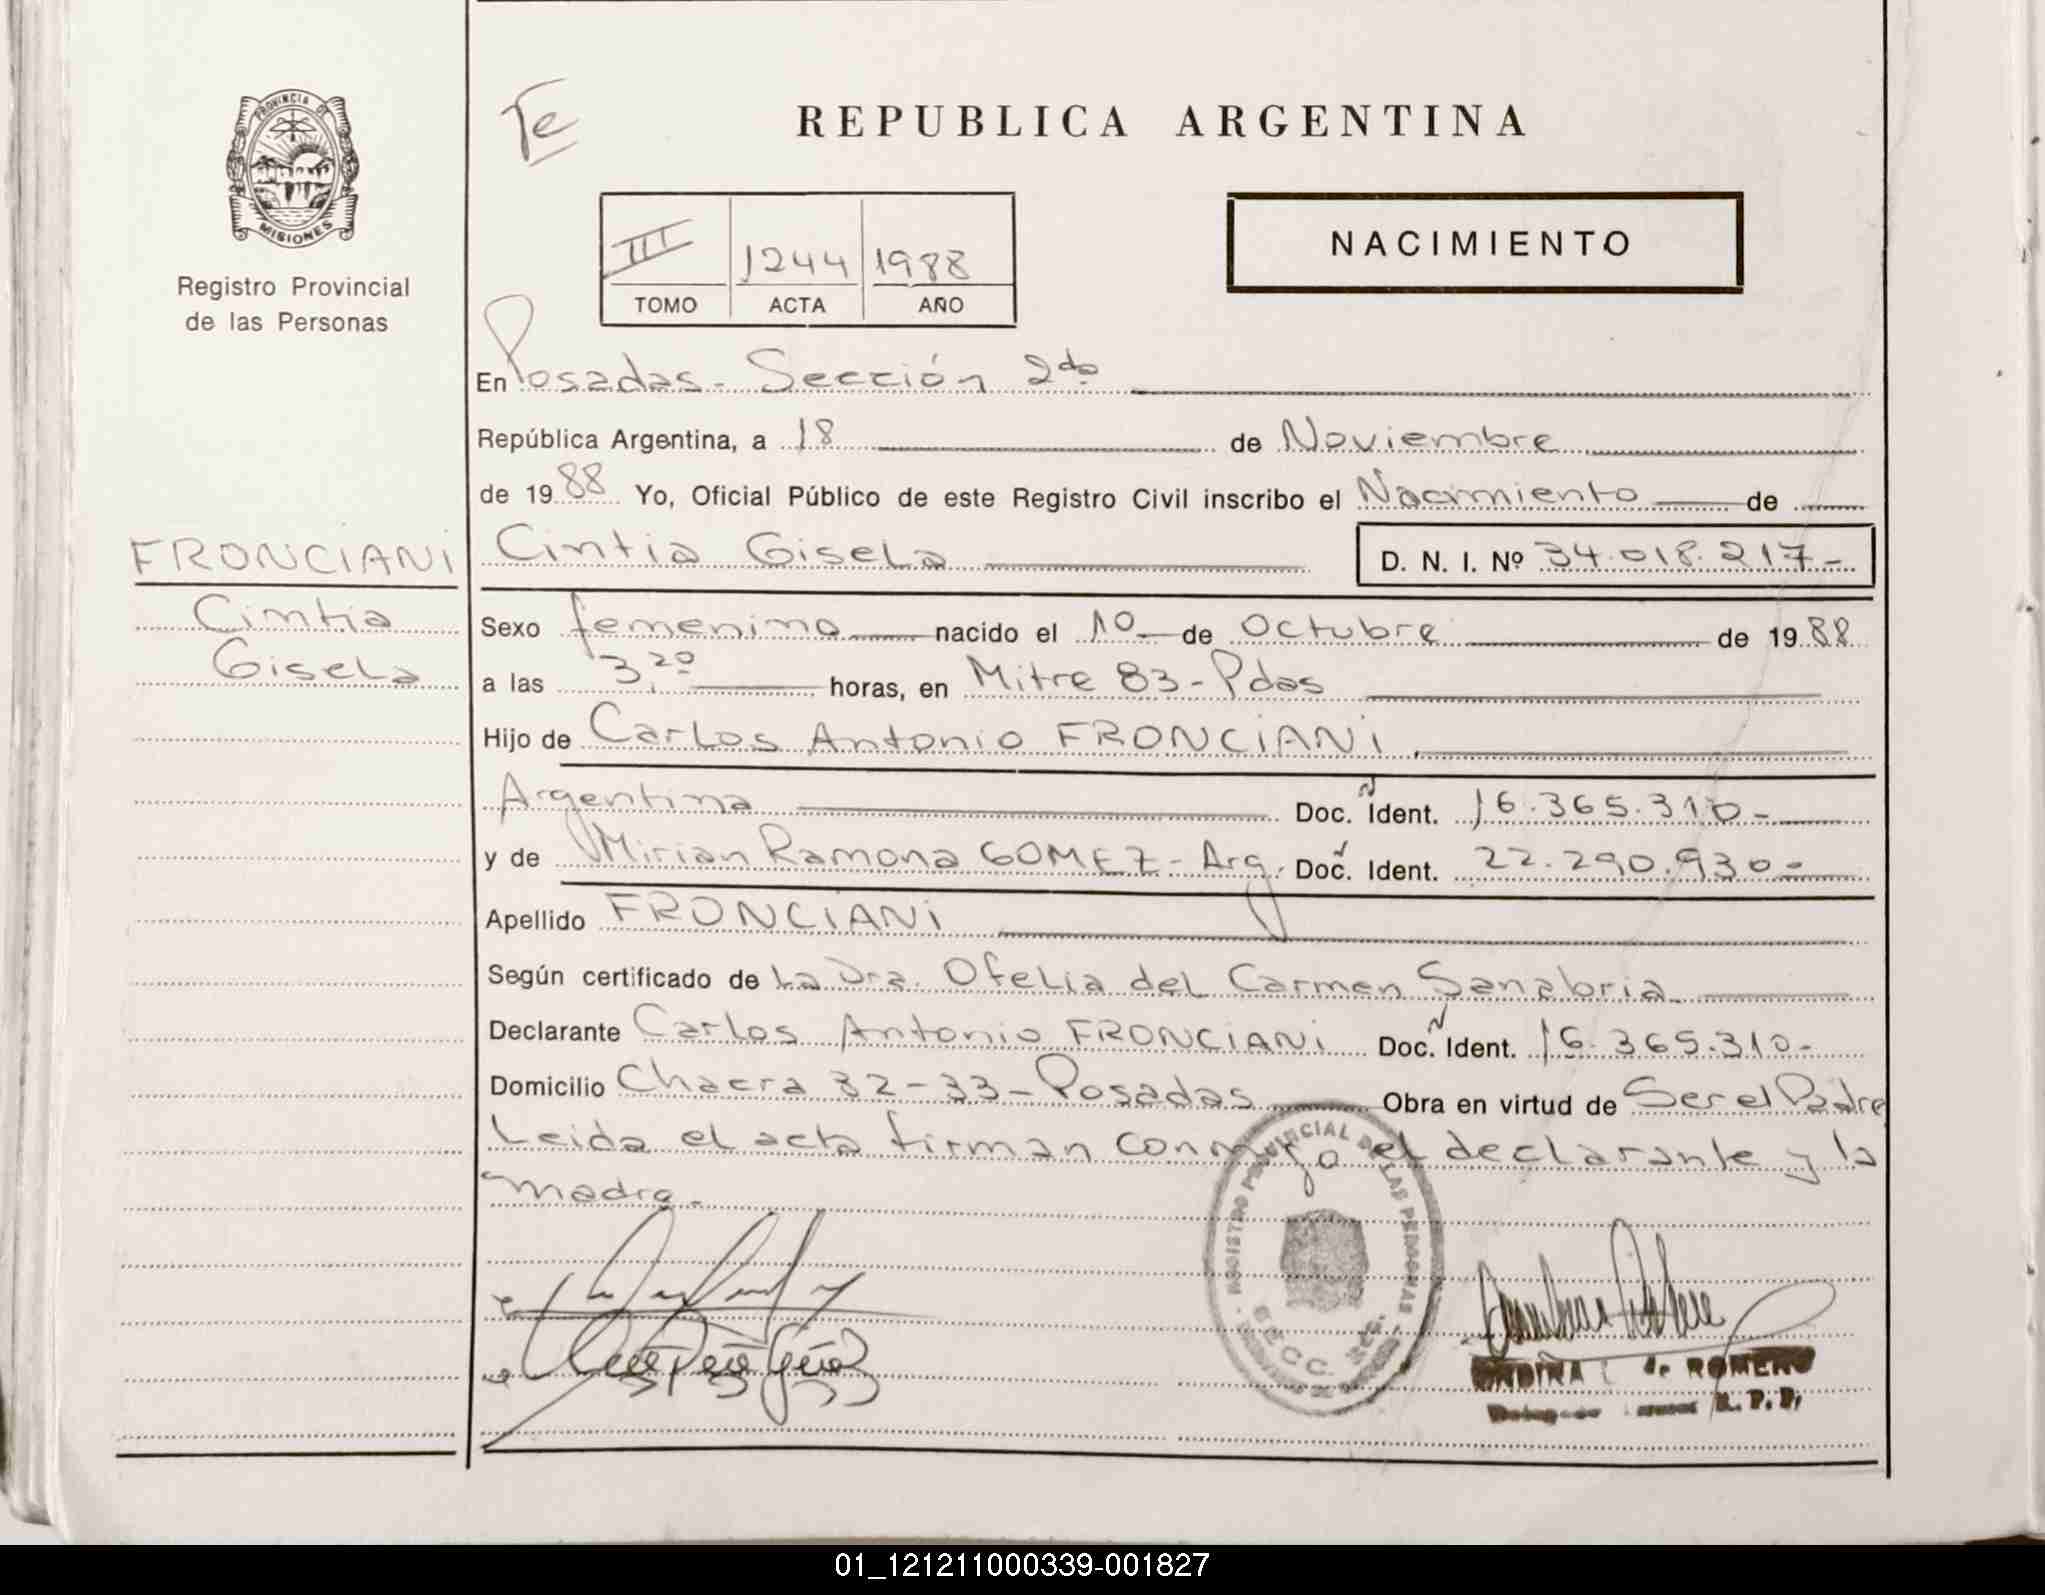 PROVINCIA DE
MISIONES
Registro Provincial
de las Personas
Te
REPUBLICA ARGENTINA
III 1244 1988
TOMO ACTA AÑO
NACIMIENTO
En Posadas - Sección 2da
República Argentina, a 18 de Noviembre
de 1988 Yo, Oficial Público de este Registro Civil inscribo el Nacimiento de
FRONCIANI Cintia Gisela D. N. I. Nº 34.018.217-
Cintia Sexo femenino nacido el 10 de Octubre de 1988
Gisela a las 3,20 horas, en Mitre 83 - Pdas
Hijo de Carlos Antonio FRONCIANI,
Argentina Doc. Ident. 16.365.310-
y de Mirian Ramona GOMEZ - Arg. Doc. Ident. 22.290.930-
Apellido FRONCIANI
Según certificado de La Dra. Ofelia del Carmen Sanabria
Declarante Carlos Antonio FRONCIANI Doc. Ident. 16.365.310-
Domicilio Chacra 32-33 - Posadas Obra en virtud de Ser el Padre
Leida el acta firman conmigo el declarante y la
madre.
REGISTRO PROVINCIAL DE LAS PERSONAS
SECC. 2da.
de ROMERO
R. P. P.
01_121211000339-001827